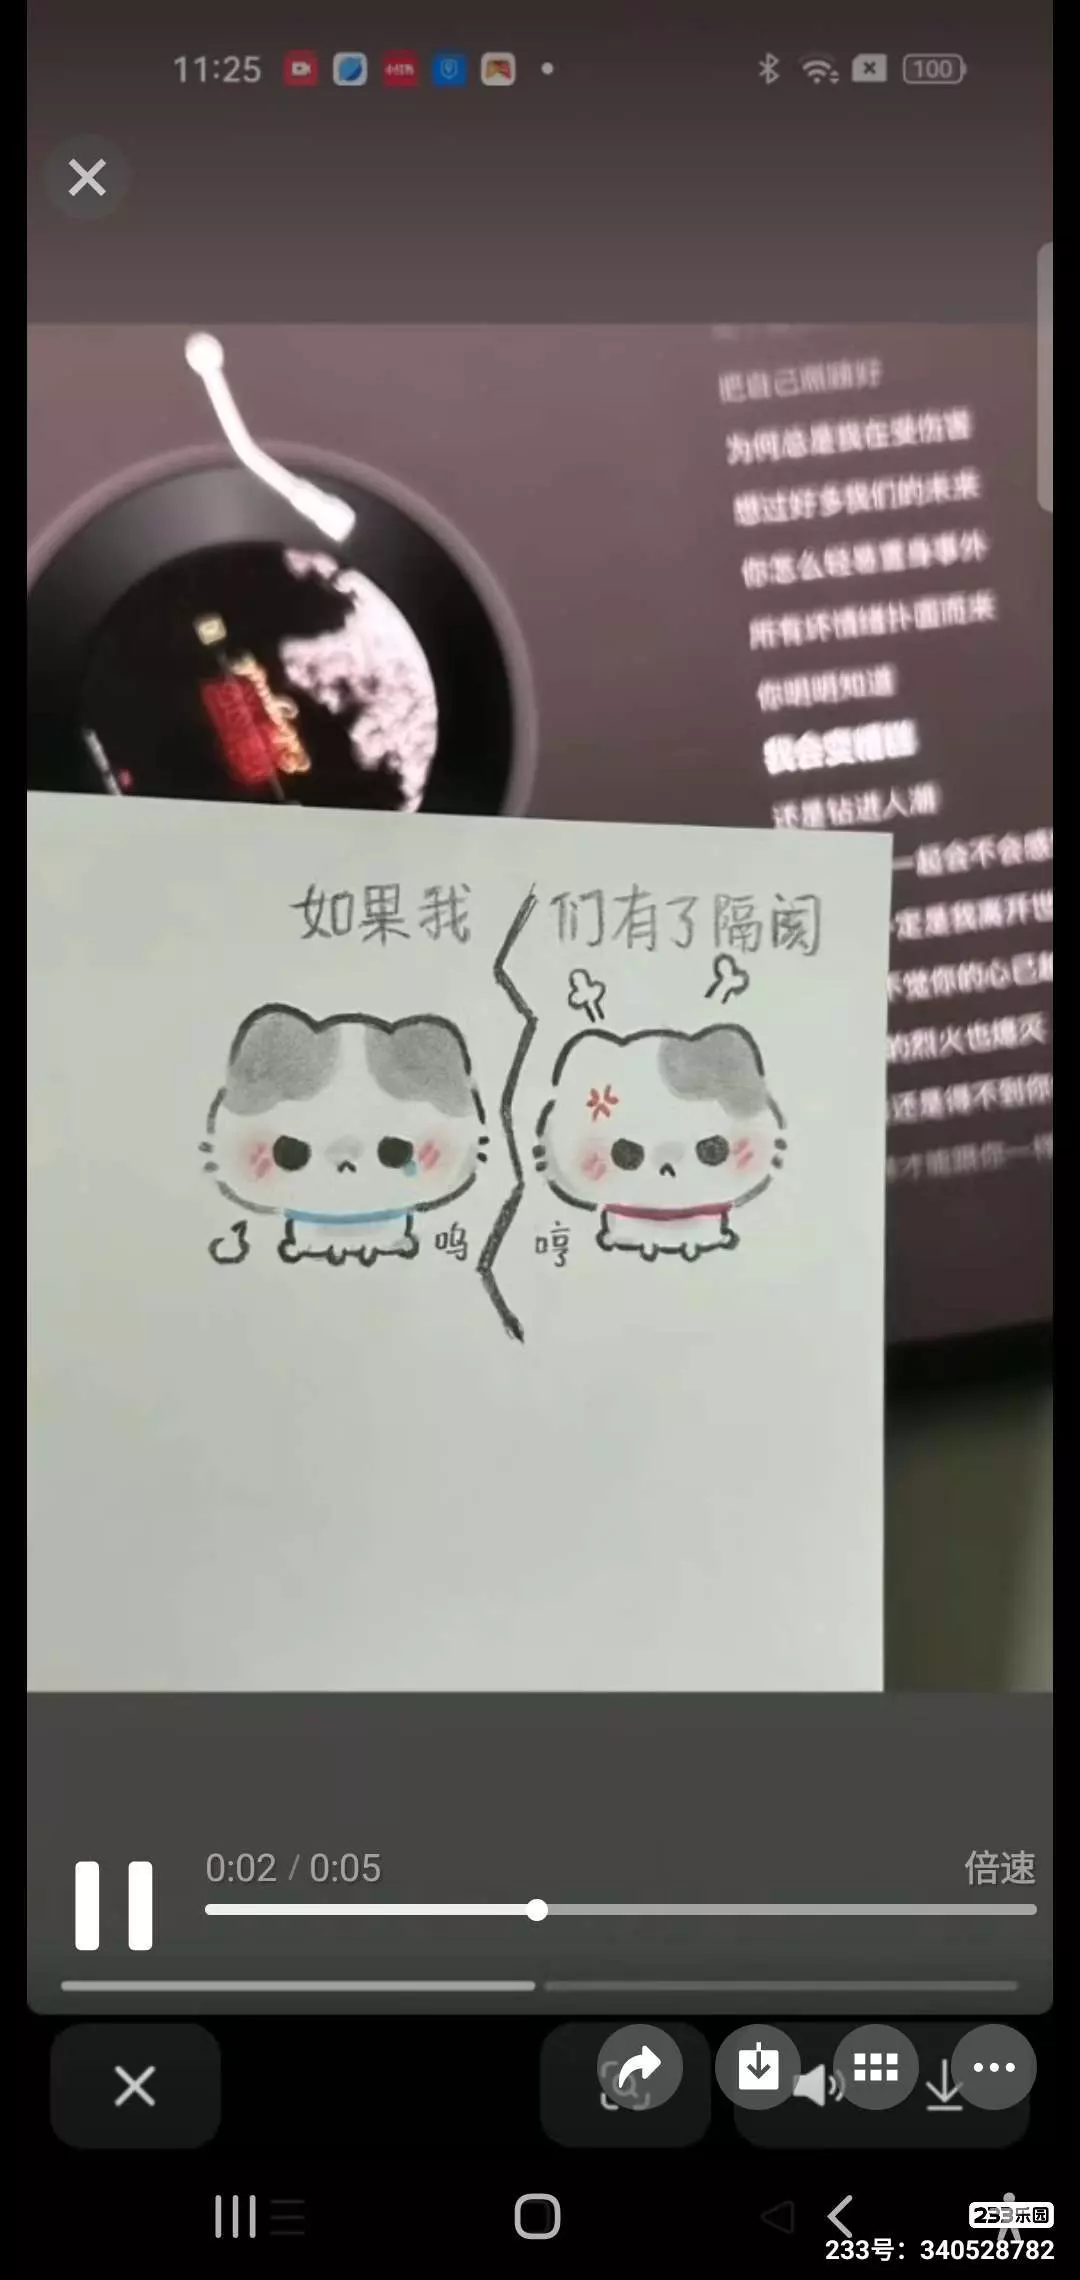 11:25
小红书
100
把自己照顾好
为何总是我在受伤害
想过好多我们的未来
你怎么轻易置身事外
所有坏情绪扑面而来
你明明知道
我会变
还是钻进人潮
一起会不会感
定是我离开世
不觉你的心已
的烈火也熄灭
还是得不到你
才能跟你一样
如果我 们有了隔阂
呜 哼
0:02 / 0:05
倍速
233乐园
233号：340528782